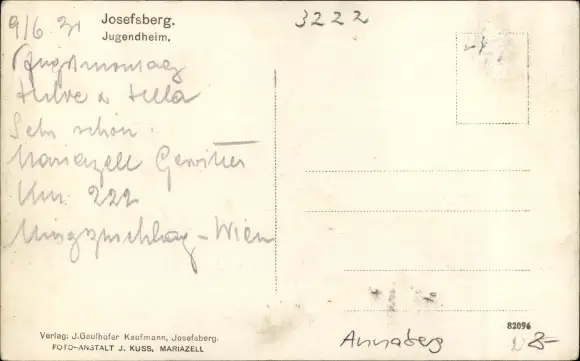 Josefsberg.
Jugendheim.
3222
9/6 31
Pfingstmontag
Hilde u Hella
Sehr schön.
Mariazell Gewitter
Km. 222
Mürzzuschlag - Wien
Verlag: J. Gaulhofer Kaufmann, Josefsberg.
FOTO-ANSTALT J. KUSS, MARIAZELL
82096
Annaberg
8-